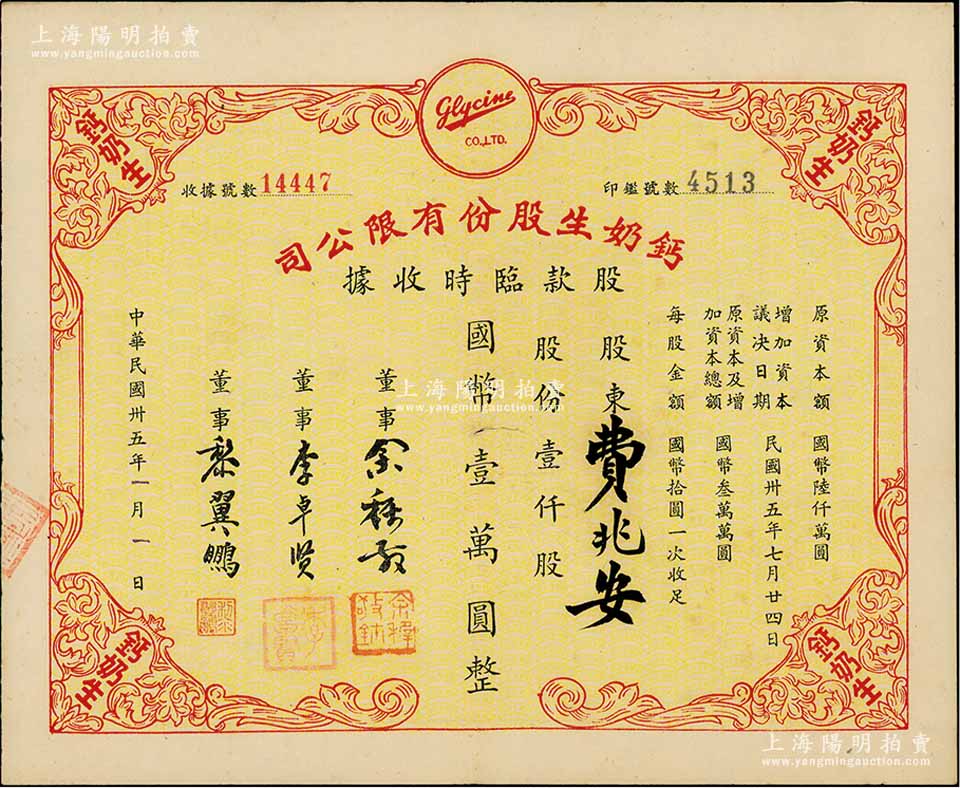 上海陽明拍賣
www.yangmingauction.com
Glycine
CO.,LTD.
鈣奶生
鈣奶生
收據號數 14447
印鑑號數 4513
鈣奶生股份有限公司
股款臨時收據
原資本額 國幣陸仟萬圓
增加資本
議决日期 民國卅五年七月廿四日
原資本及增
加資本總額 國幣叁萬萬圓
每股金額 國幣拾圓一次收足
股東 費兆安
股份壹仟股
國幣壹萬圓整
董事
董事 李卓賢
董事 黎翼鵬
中華民國卅五年一月一日
上海陽明拍賣
www.yangmingauction.com
鈣奶生
鈣奶生
上海陽明拍賣
www.yangmingauction.com